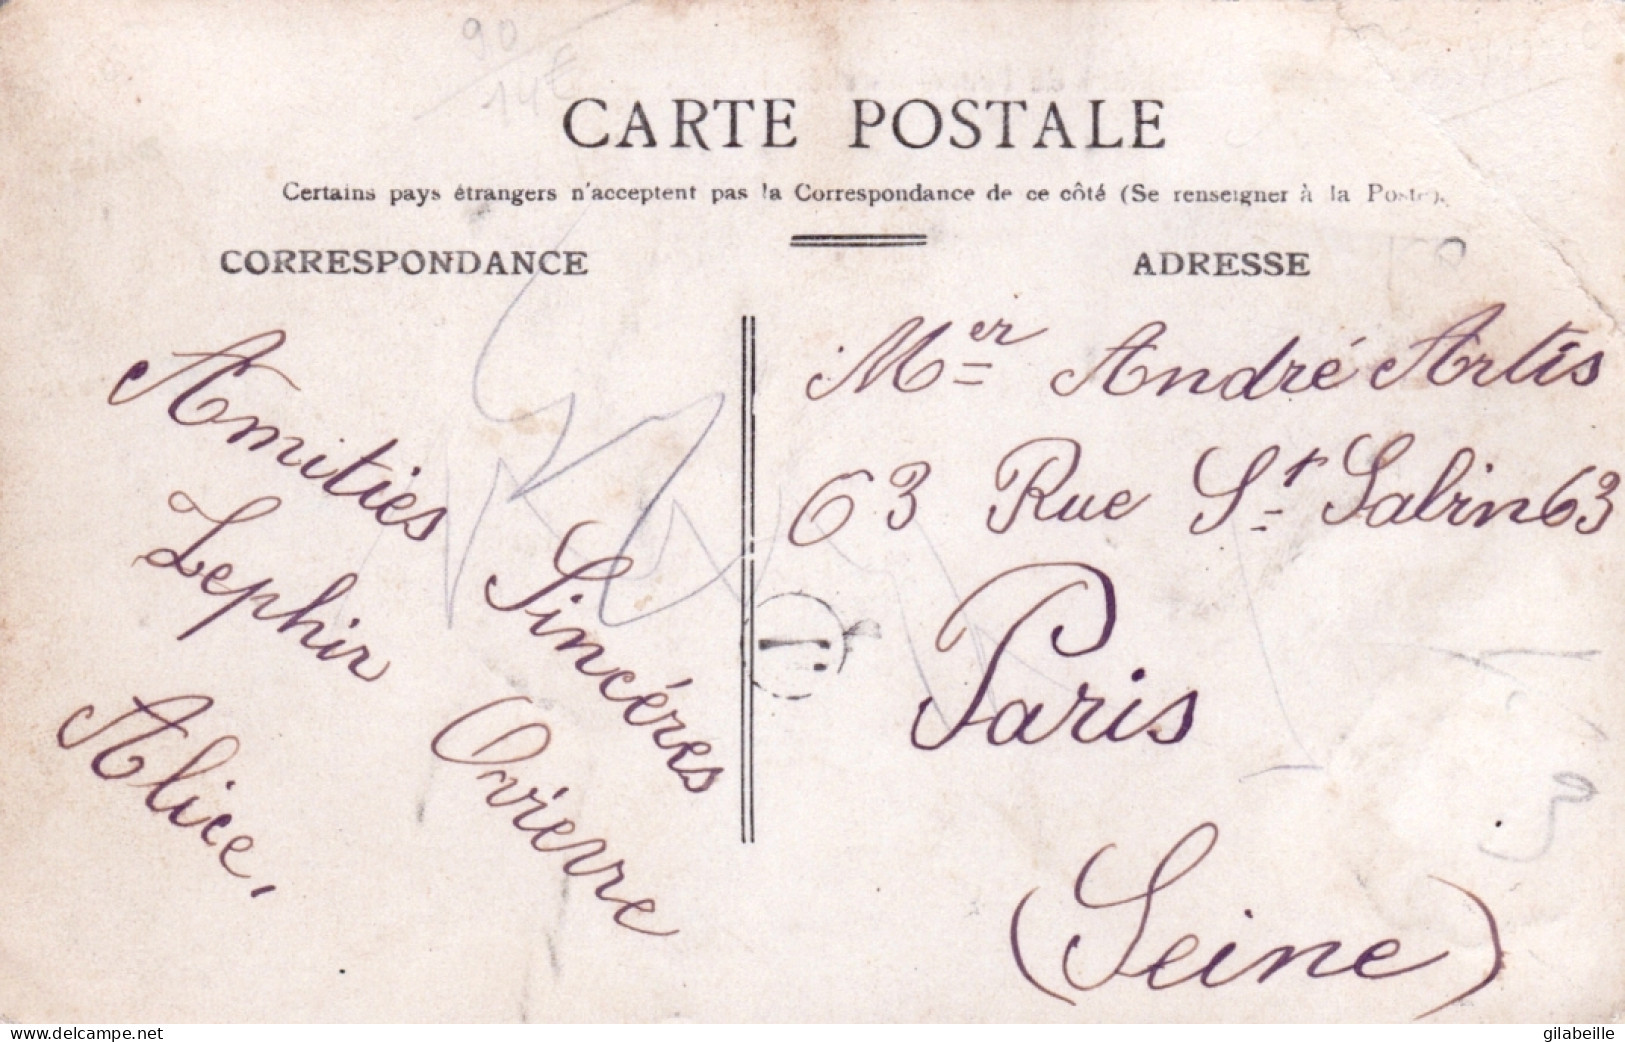 90
14€
CARTE POSTALE
Certains pays étrangers n'acceptent pas la Correspondance de ce côté (Se renseigner à la Poste).
CORRESPONDANCE
Amitiés Sincéres
Zephir Ovierre
Alice.
ADRESSE
Mer André Artis
63 Rue St Sabin 63
Paris
(Seine)
www.delcampe.net
gilabeille